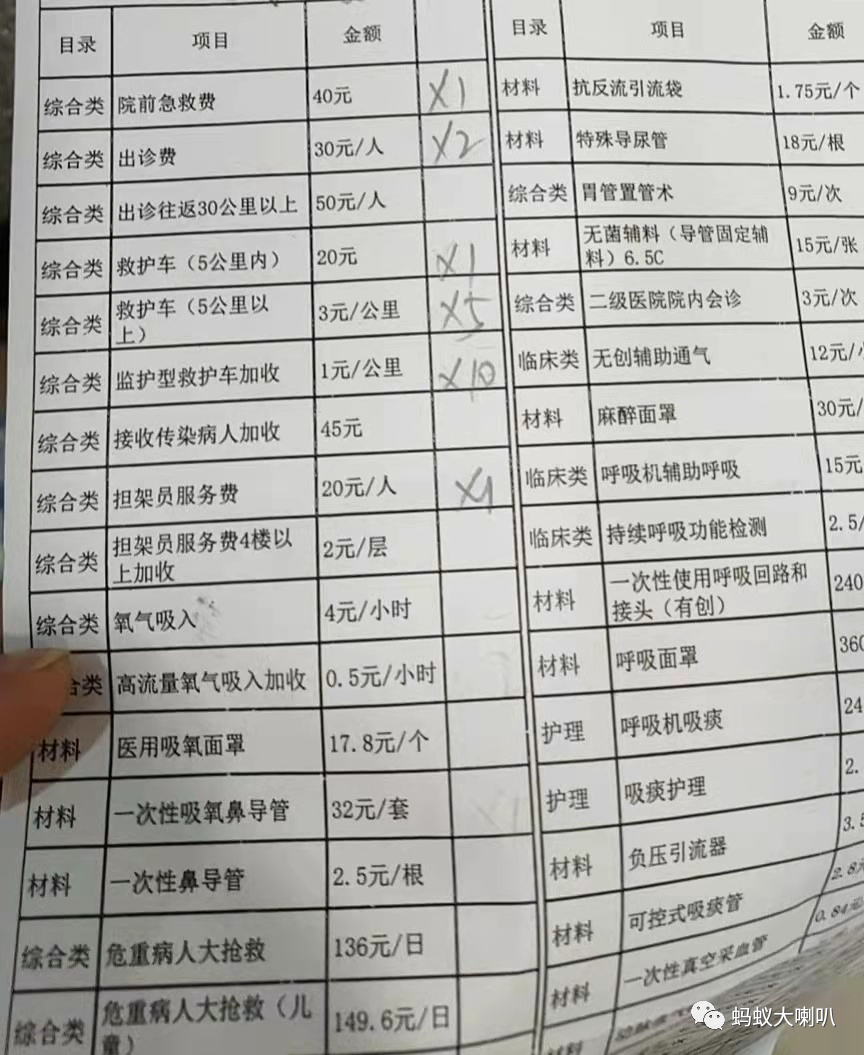 目录 项目 金额
综合类 院前急救费 40元 X1
综合类 出诊费 30元/人 X2
综合类 出诊往返30公里以上 50元/人
综合类 救护车（5公里内） 20元 X1
综合类 救护车（5公里以
上） 3元/公里 X5
综合类 监护型救护车加收 1元/公里 X10
综合类 接收传染病人加收 45元
综合类 担架员服务费 20元/人 X1
综合类 担架员服务费4楼以
上加收 2元/层
综合类 氧气吸入 4元/小时
合类 高流量氧气吸入加收 0.5元/小时
材料 医用吸氧面罩 17.8元/个
材料 一次性吸氧鼻导管 32元/套 X1
材料 一次性鼻导管 2.5元/根
综合类 危重病人大抢救 136元/日
综合类 危重病人大抢救（儿
童） 149.6元/日
目录 项目 金额
材料 抗反流引流袋 1.75元/个
材料 特殊导尿管 18元/根
综合类 胃管置管术 9元/次
材料 无菌辅料（导管固定辅
料）6.5C 15元/张
综合类 二级医院院内会诊 3元/次
临床类 无创辅助通气 12元/
材料 麻醉面罩 30元/
临床类 呼吸机辅助呼吸 15元
临床类 持续呼吸功能检测 2.5/
材料 一次性使用呼吸回路和
接头（有创） 240
材料 呼吸面罩 360
护理 呼吸机吸痰 24
护理 吸痰护理 2.
材料 负压引流器 3.5
材料 可控式吸痰管 2.8元
材料 一次性真空采血管 0.84元
材料
蚂蚁大喇叭